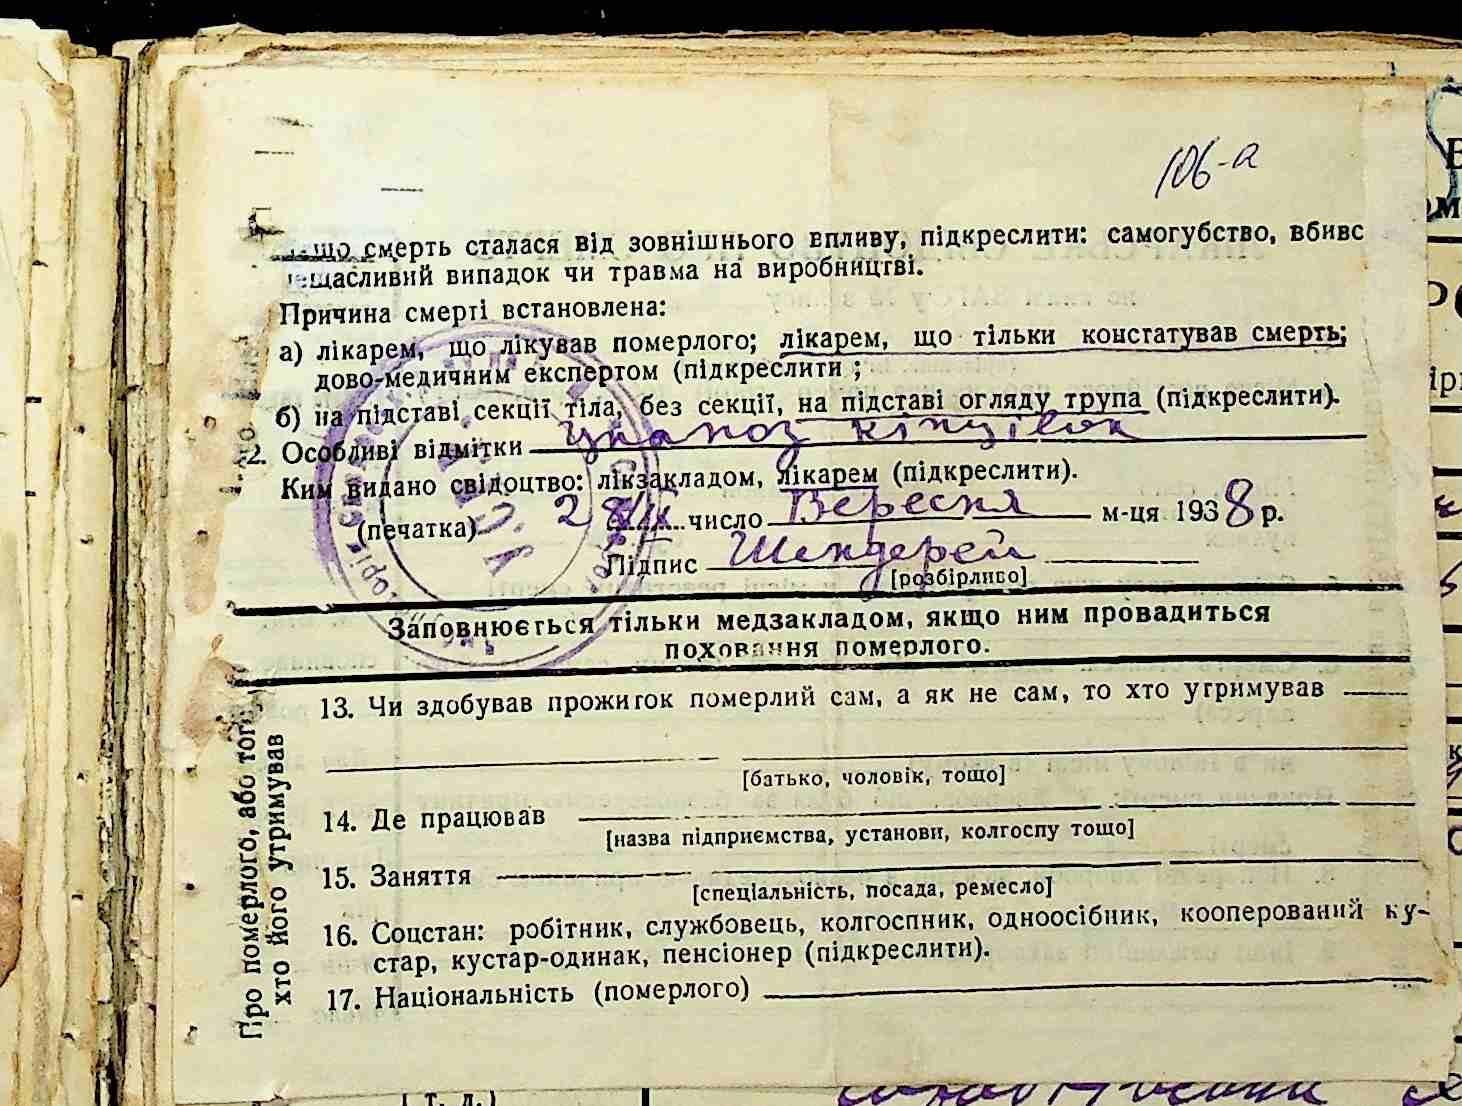 106-а
що смерть сталася від зовнішнього впливу, підкреслити: самогубство, вбивс
нещасливий випадок чи травма на виробництві.
Причина смерті встановлена:
а) лікарем, що лікував померлого; лікарем, що тільки констатував смерть;
дово-медичним експертом (підкреслити ;
б) на підставі секції тіла, без секції, на підставі огляду трупа (підкреслити).
2. Особливі відмітки ціаноз кінцівок
Ким видано свідоцтво: лікзакладом, лікарем (підкреслити).
(печатка) 28/IX число Вересня м-ця 1938 р.
Підпис Шендерей
[розбірливо]
Заповнюється тільки медзакладом, якщо ним провадиться
поховання померлого.
Про померлого, або того
хто його утримував
13. Чи здобував прожиток померлий сам, а як не сам, то хто утримував
[батько, чоловік, тощо]
14. Де працював
[назва підприємства, установи, колгоспу тощо]
15. Заняття
[спеціальність, посада, ремесло]
16. Соцстан: робітник, службовець, колгоспник, одноосібник, кооперований ку-
стар, кустар-одинак, пенсіонер (підкреслити).
17. Національність (померлого)
(т. д.)